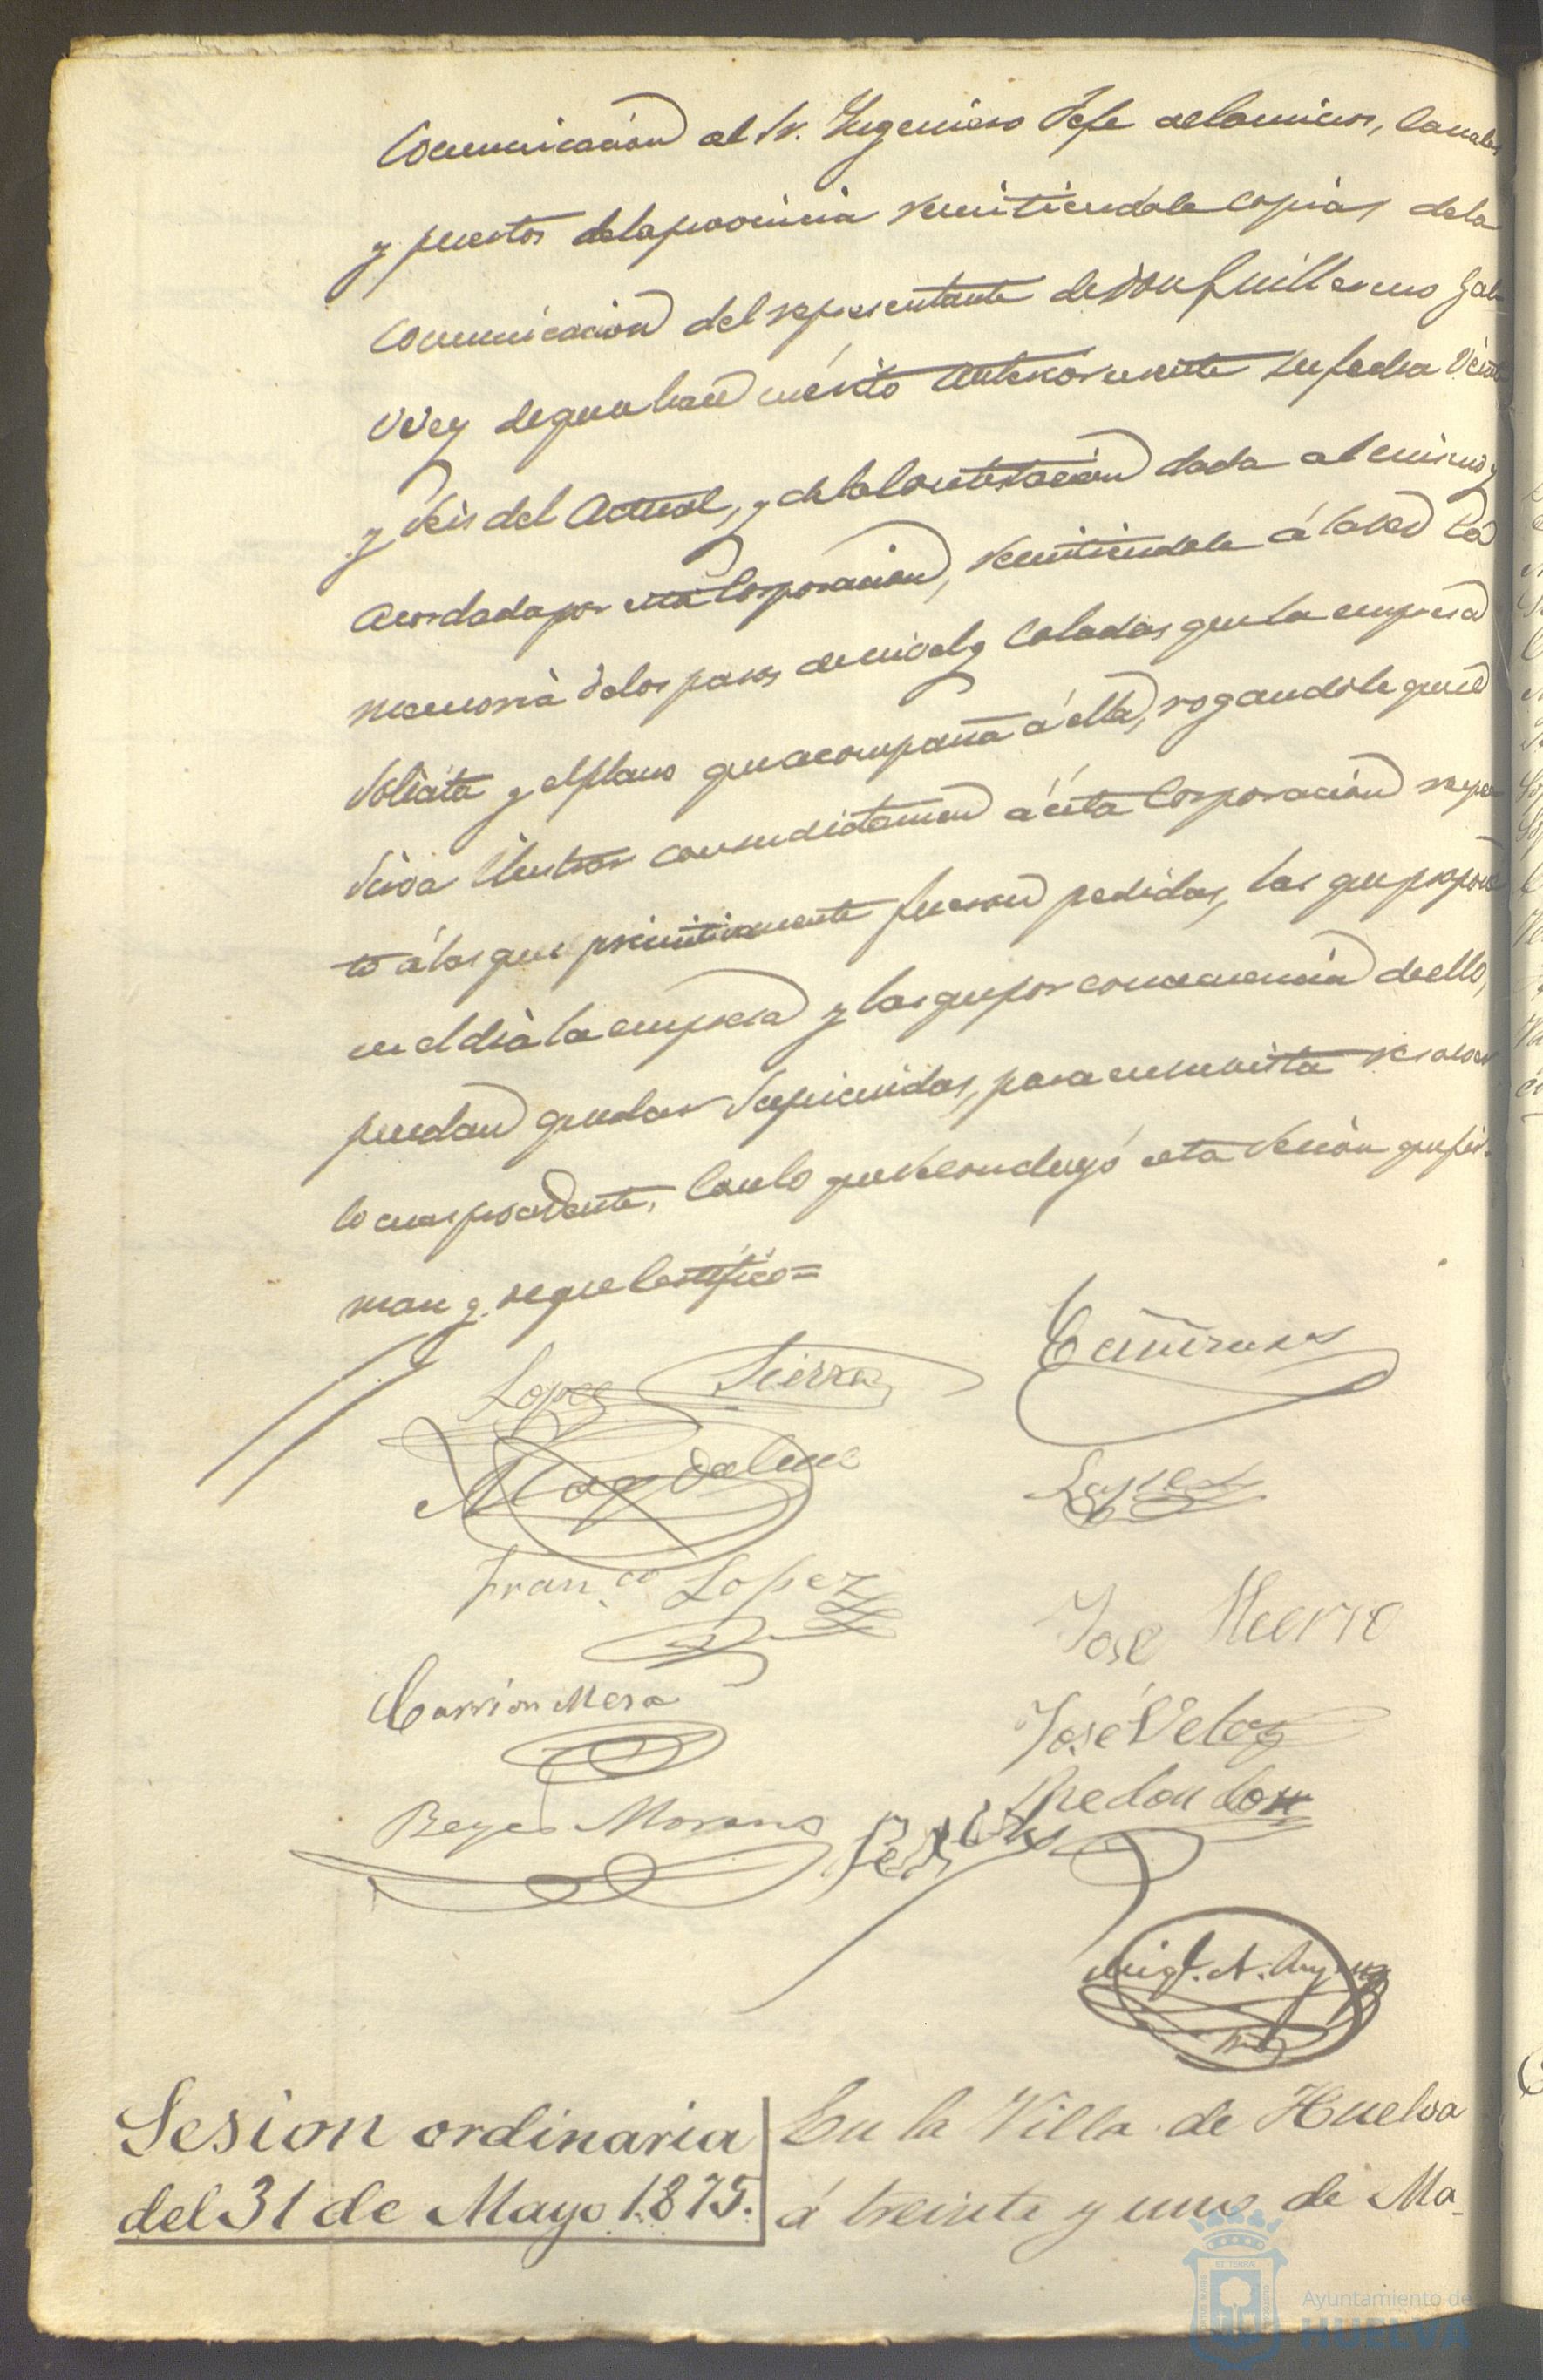 Comunicacion al Sr. Yngeniero Jefe de Caminos, Canales
y puertos de la provincia remitiendole copias de la
comunicacion del representante de Don Guillermo
de que se hace mérito anteriormente su fecha veinte
y seis del actual, y de la contestacion dada al mismo y
acordada por esta Corporacion, remitiendole á la vez la
memoria de los pasos de nivel y coladas que la empresa
solicita y el plano que acompaña á ella, rogandole que se
sirva ilustrar con su dictamen á esta Corporacion respec
to á las que primitivamente fueron pedidas, las que propone
en el dia la empresa y las que por consecuencia de ello,
puedan quedar suprimidas, para en su vista resolver
lo mas procedente. Con lo que se concluyó esta sesion que fir-
man y de que certifico=
Lopez Sierra
Magdalena
Lopez
Fran.co Lopez
José
Carrion Mesa
José Veloz
Reyes Moreno
Redondo
Migl. A.
Sesion ordinaria
del 31 de Mayo 1.875.
En la Villa de Huelva
á treinta y uno de Ma-
Ayuntamiento de
HUELVA